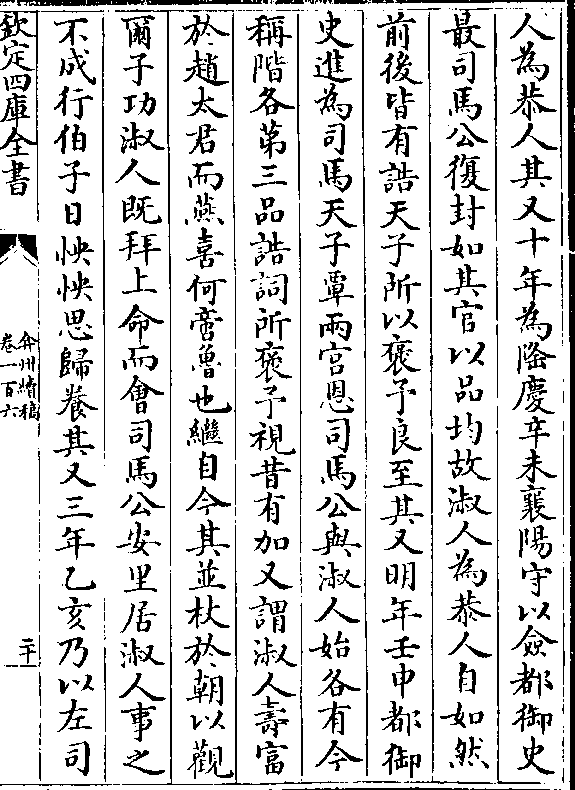 人為恭人其又十年為隆慶辛未襄陽守以僉都御史
最司馬公復封如其官以品均故淑人為恭人自如然
前後皆有誥天子所以褒予良至其又明年壬申都御
史進為司馬天子覃兩宮恩司馬公與淑人始各有今
稱階各第三品誥詞所褒予視昔有加又謂淑人壽富
於趙太君而燕喜何啻魯也繼自今其並杖於朝以觀
爾子功淑人既拜上命而會司馬公安里居淑人事之
不成行伯子日怏怏思歸養其又三年乙亥乃以左司
欽定四庫全書
弇州續稿
卷一百六
二十